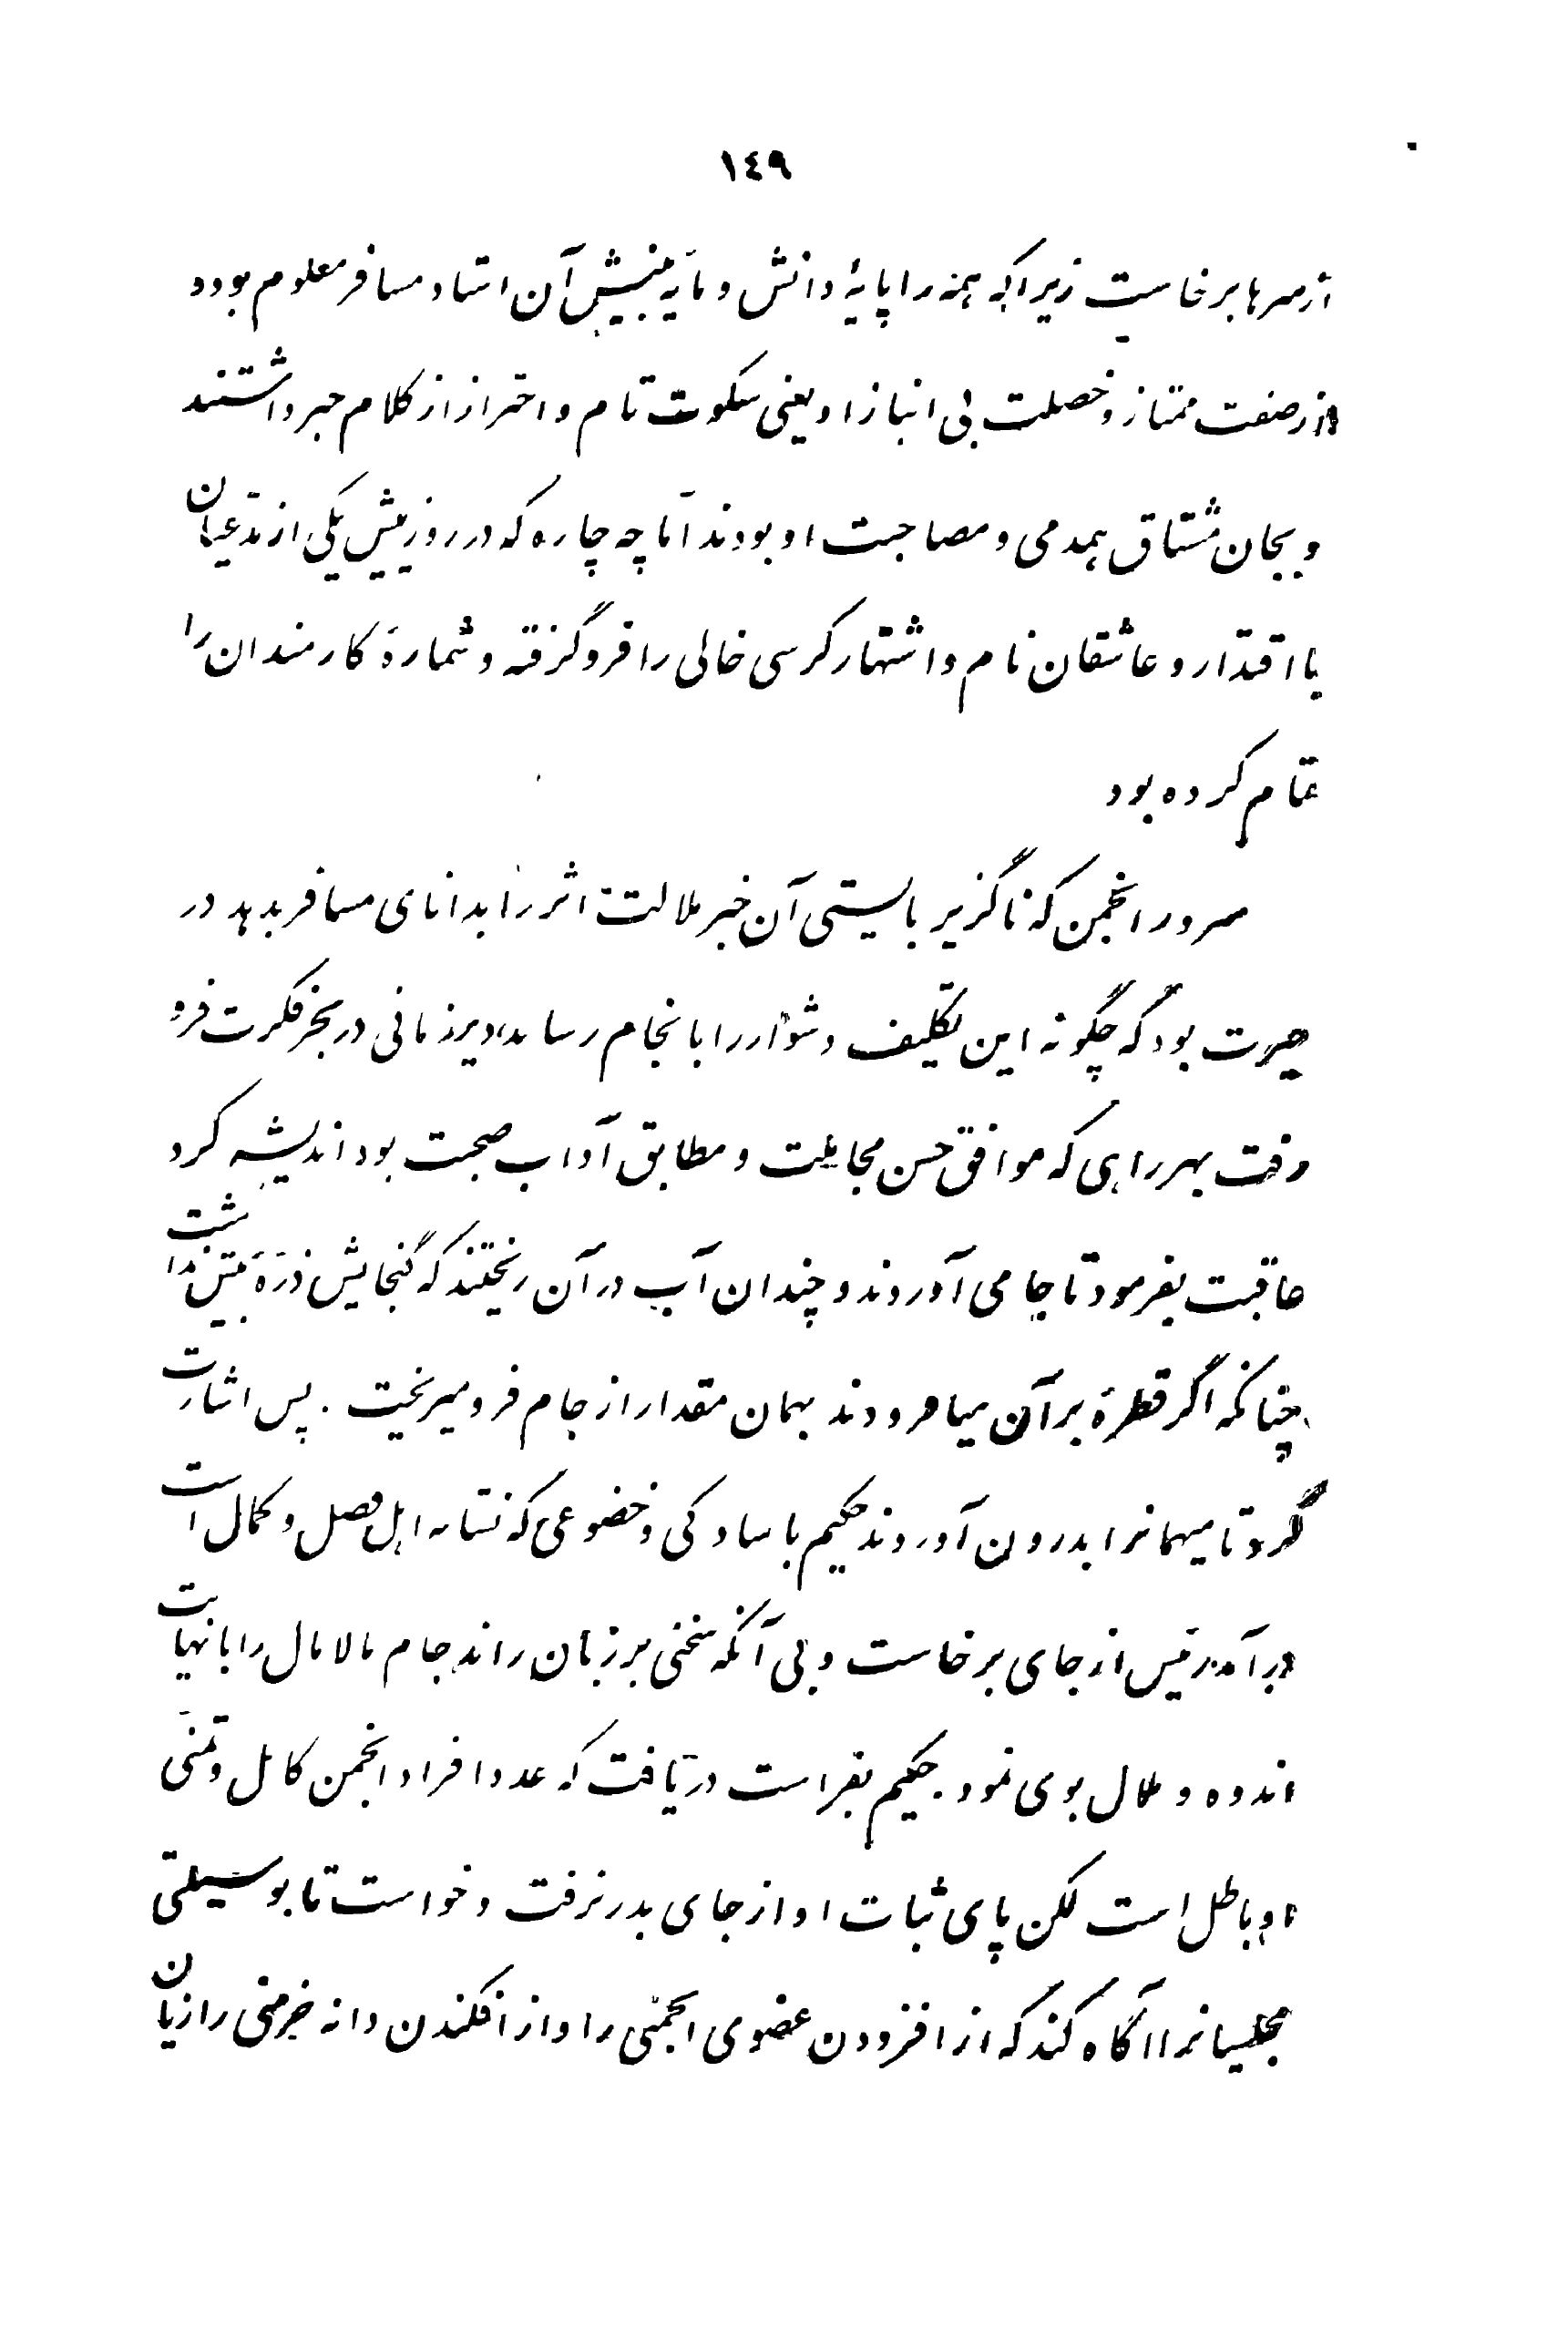 ١٤٩
از سرها برخاست زیرا که همه را پایهٔ دانش و مایه بینش آن استاد مسافر معلوم بود و
از صفت ممتاز و خصلت بی انباز او یعنی سکوت تام و احتراز از کلام خبر داشتند
و بجان مشتاق همدمی و مصاحبت او بودند امّا چه چاره که در روز پیش یکی از مدّعیان
با اقتدار و عاشقان نام و اشتهار کرسی خالی را فرو گرفته و شمارهٔ کارمندان را
تمام کرده بود
سرور انجمن که ناگزیر بایستی آن خبر ملالت اثر را بدانای مسافر بدهد در
حیرت بود که چگونه این تکلیف دشوار را بانجام رساند، دیر زمانی در بحر فکرت فرو
رفت بهر راهی که موافق حسن مجاملت و مطابق آداب صحبت بود اندیشه کرد
عاقبت بفرمود تا جامی آوردند و چندان آب در آن ریختند که گنجایش ذرّهٔ بیش نداشت
چنانکه اگر قطرهٔ بر آن میافزودند بهمان مقدار از جام فرو میریخت . پس اشارت
کرد تا میهمانرا بدرون آوردند حکیم با سادگی و خضوعی که نشانه اهل فضل و کمال است
درآمد رئیس از جای برخاست و بی آنکه سخنی بر زبان راند جام مالامال را با نهایت
اندوه و ملال بوی نمود . حکیم بفراست دریافت که عدد افراد انجمن کامل و تمنّی
او باطل است لکن پای ثبات او از جای بدر نرفت و خواست تا بوسیلتی
مجلسیانرا آگاه کند که از افزودن عضوی انجمنی را و از افکندن دانه خرمنی را زیان